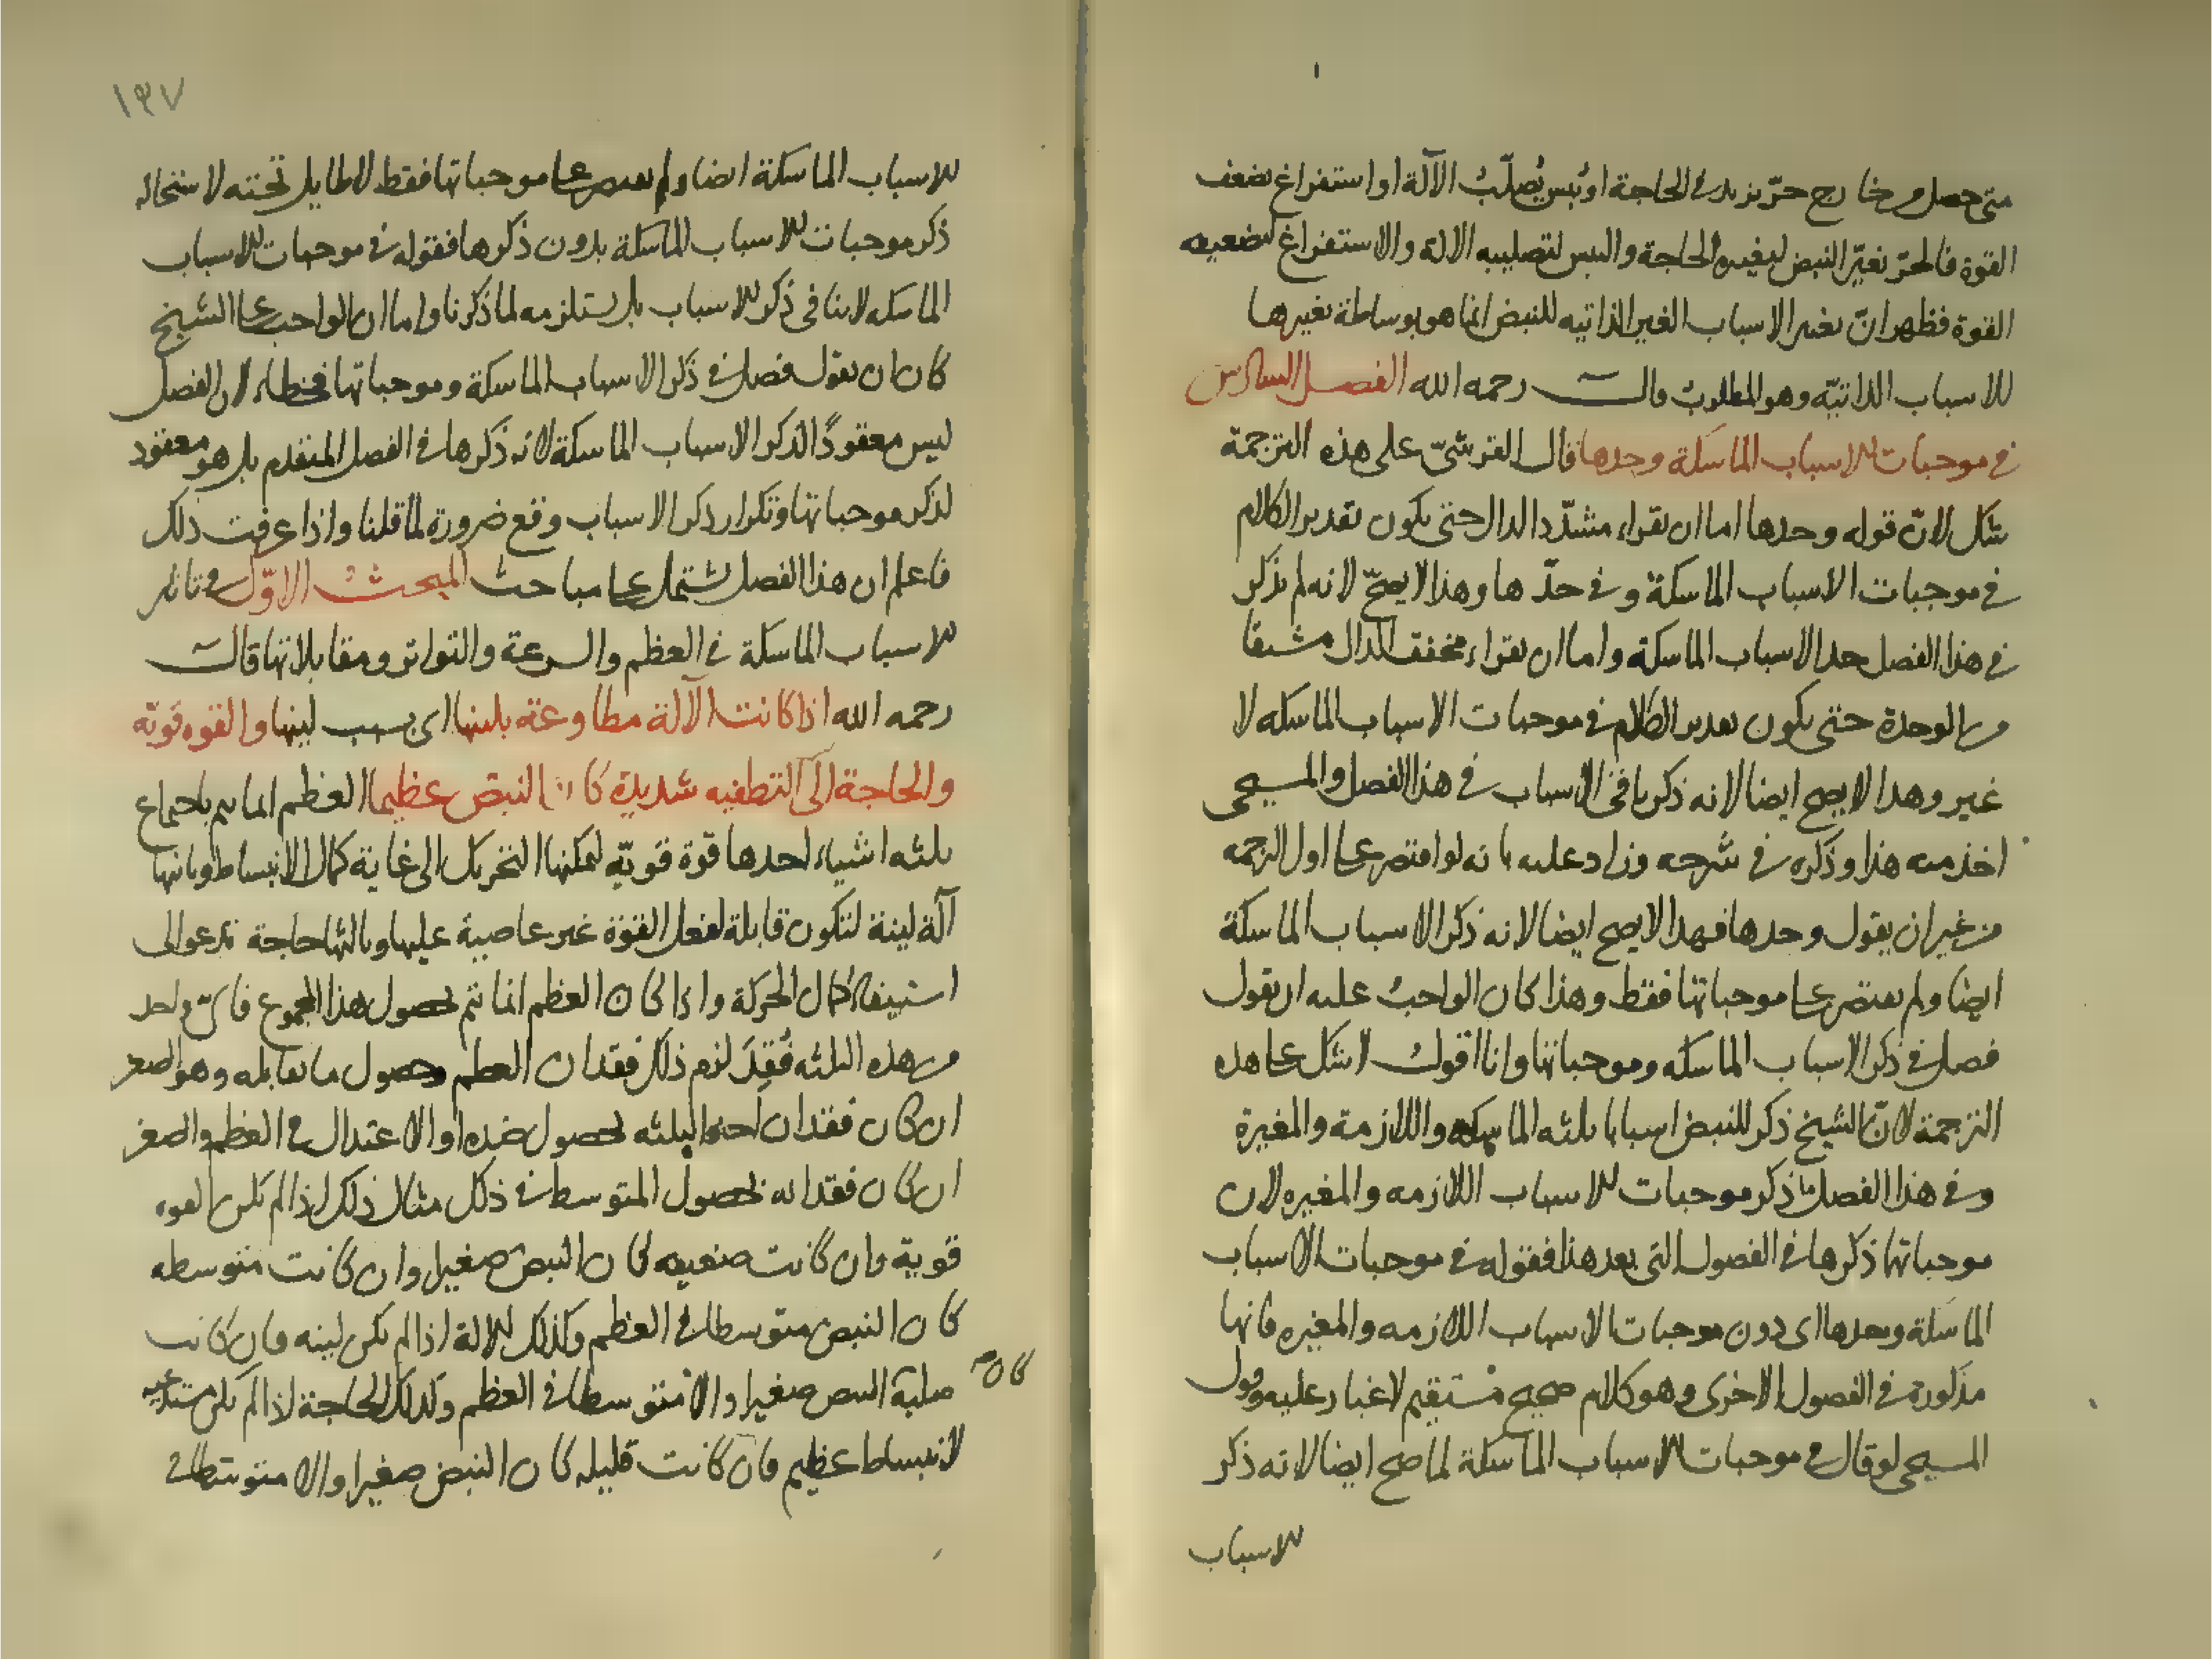 متى حصل من خارج حرّ يزيد فى الحاجة او يُبس يُصلّبُ الآلة او استفراغ يضعف
القوة فالحرّ يغيّر النبض لتغييره الحاجة واليبس لتصليبه الالة والاستفراغ لتضعيفه
القوة فظهر انّ تغيير الاسباب الغير الذاتيه للنبض انما هو بوساطة تغييرها
للاسباب الذاتيّه وهو المطلوب قال رحمه الله الفصل السادس
فى موجبات الاسباب الماسكة وحدها قال القرشىّ على هذه الترجمة
شكّ لانّ قوله وحدها اما ان يقراء مشدّد الدال حتى يكون تقدير الكلام
فى موجبات الاسباب الماسكة وفى حدّها وهذا لا يصحّ لانه لم يذكر
فى هذا الفصل حد الاسباب الماسكة واما ان يقراء مخفف الدال مشتقا
من الوحدة حتى يكون تقدير الكلام فى موجبات الاسباب الماسكه لا
غير وهذا لا يصح ايضا لانه ذكر باقى الاسباب فى هذا الفصل والمسيحى
اخذ منه هذا وذكره فى شرحه وزاد عليه بانه لو اقتصر على اول الترجمه
من غير ان يقول وحدها فهذا لا يصح ايضا لانه ذكر الاسباب الماسكة
ايضا ولم يقتصر على موجباتها فقط وهذا كان الواجب عليه ان يقول
فصل فى ذكر الاسباب الماسكه وموجباتها وانا اقول لا شكّ على هذه
الترجمة لانّ الشيخ ذكر للنبض اسبابا ثلثه الماسكه واللازمة والمغيرة
وفى هذا الفصل ما ذكر موجبات الاسباب اللازمه والمغيره لان
موجباتها ذكرها فى الفصول التى بعد هذا فقوله فى موجبات الاسباب
الماسكة وحدها اى دون موجبات الاسباب اللازمه والمغيره فانها
مذكورة فى الفصول الاخرى وهو كلام صحيح مستقيم لا غبار عليه وقول
المسيحى لو قال فى موجبات الاسباب الماسكة لما صح ايضا لانه ذكر
الاسباب
١٣٧
الاسباب الماسكة ايضا ولم يقتصر على موجباتها فقط لا طايل تحته لاستحالة
ذكر موجبات الاسباب الماسكة بدون ذكرها فقوله فى موجبات الاسباب
الماسكه لا ينافى ذكر الاسباب بل يستلزمه لما ذكرنا واما ان الواجب على الشيخ
كان ان يقول فصل فى ذكر الاسباب الماسكة وموجباتها فخطاء لان الفصل
ليس معقودًا لذكر الاسباب الماسكة لانه ذكرها فى الفصل المتقدم بل هو معقود
لذكر موجباتها وتكرار ذكر الاسباب وقع ضرورة لما قلنا واذا عرفت ذلك
فاعلم ان هذا الفصل يشتمل على مباحث المبحث الاوّل فى تاثير
الاسباب الماسكة فى العظم والسرعة والتواتر ومقابلاتها قال
رحمه الله اذا كانت الآلة مطاوعة بلينها اى بسبب لينها والقوه قويّه
والحاجة الى التطفيه شديدة كان النبض عظيما العظم انما يتم باجتماع
ثلثه اشياء احدها قوة قويّه يمكنها التحريك الى غاية كمال الانبساط وثانيها
آلة لينة لتكون قابلة لفعل القوة غير عاصية عليها وثالثها حاجة تدعوا الى
استيفاء كمال الحركة واذا كان العظم انما يتم بحصول هذا المجموع فاىّ واحد
من هذه الثلثه فُقِدَ لزم ذلك فقدان العظم وحصول ما يقابله وهو الصغر
ان كان فقدان احد الثلثه لحصول ضده او الاعتدال فى العظم والصغر
ان كان فقدانه لحصول المتوسط فى ذلك مثال ذلك اذا لم تكن القوه
قوية فان كانت ضعيفه كان النبض صغيرا وان كانت متوسطه
كان النبض متوسطا فى العظم وكذلك الالة اذا لم تكن لينه فان كانت
صلبة النبض صغيرا والا متوسطا فى العظم وكذلك الحاجة اذا لم تكن مستدعيه
كان صح
لانبساط عظيم فان كانت قليله كان النبض صغيرا والا متوسطا فى